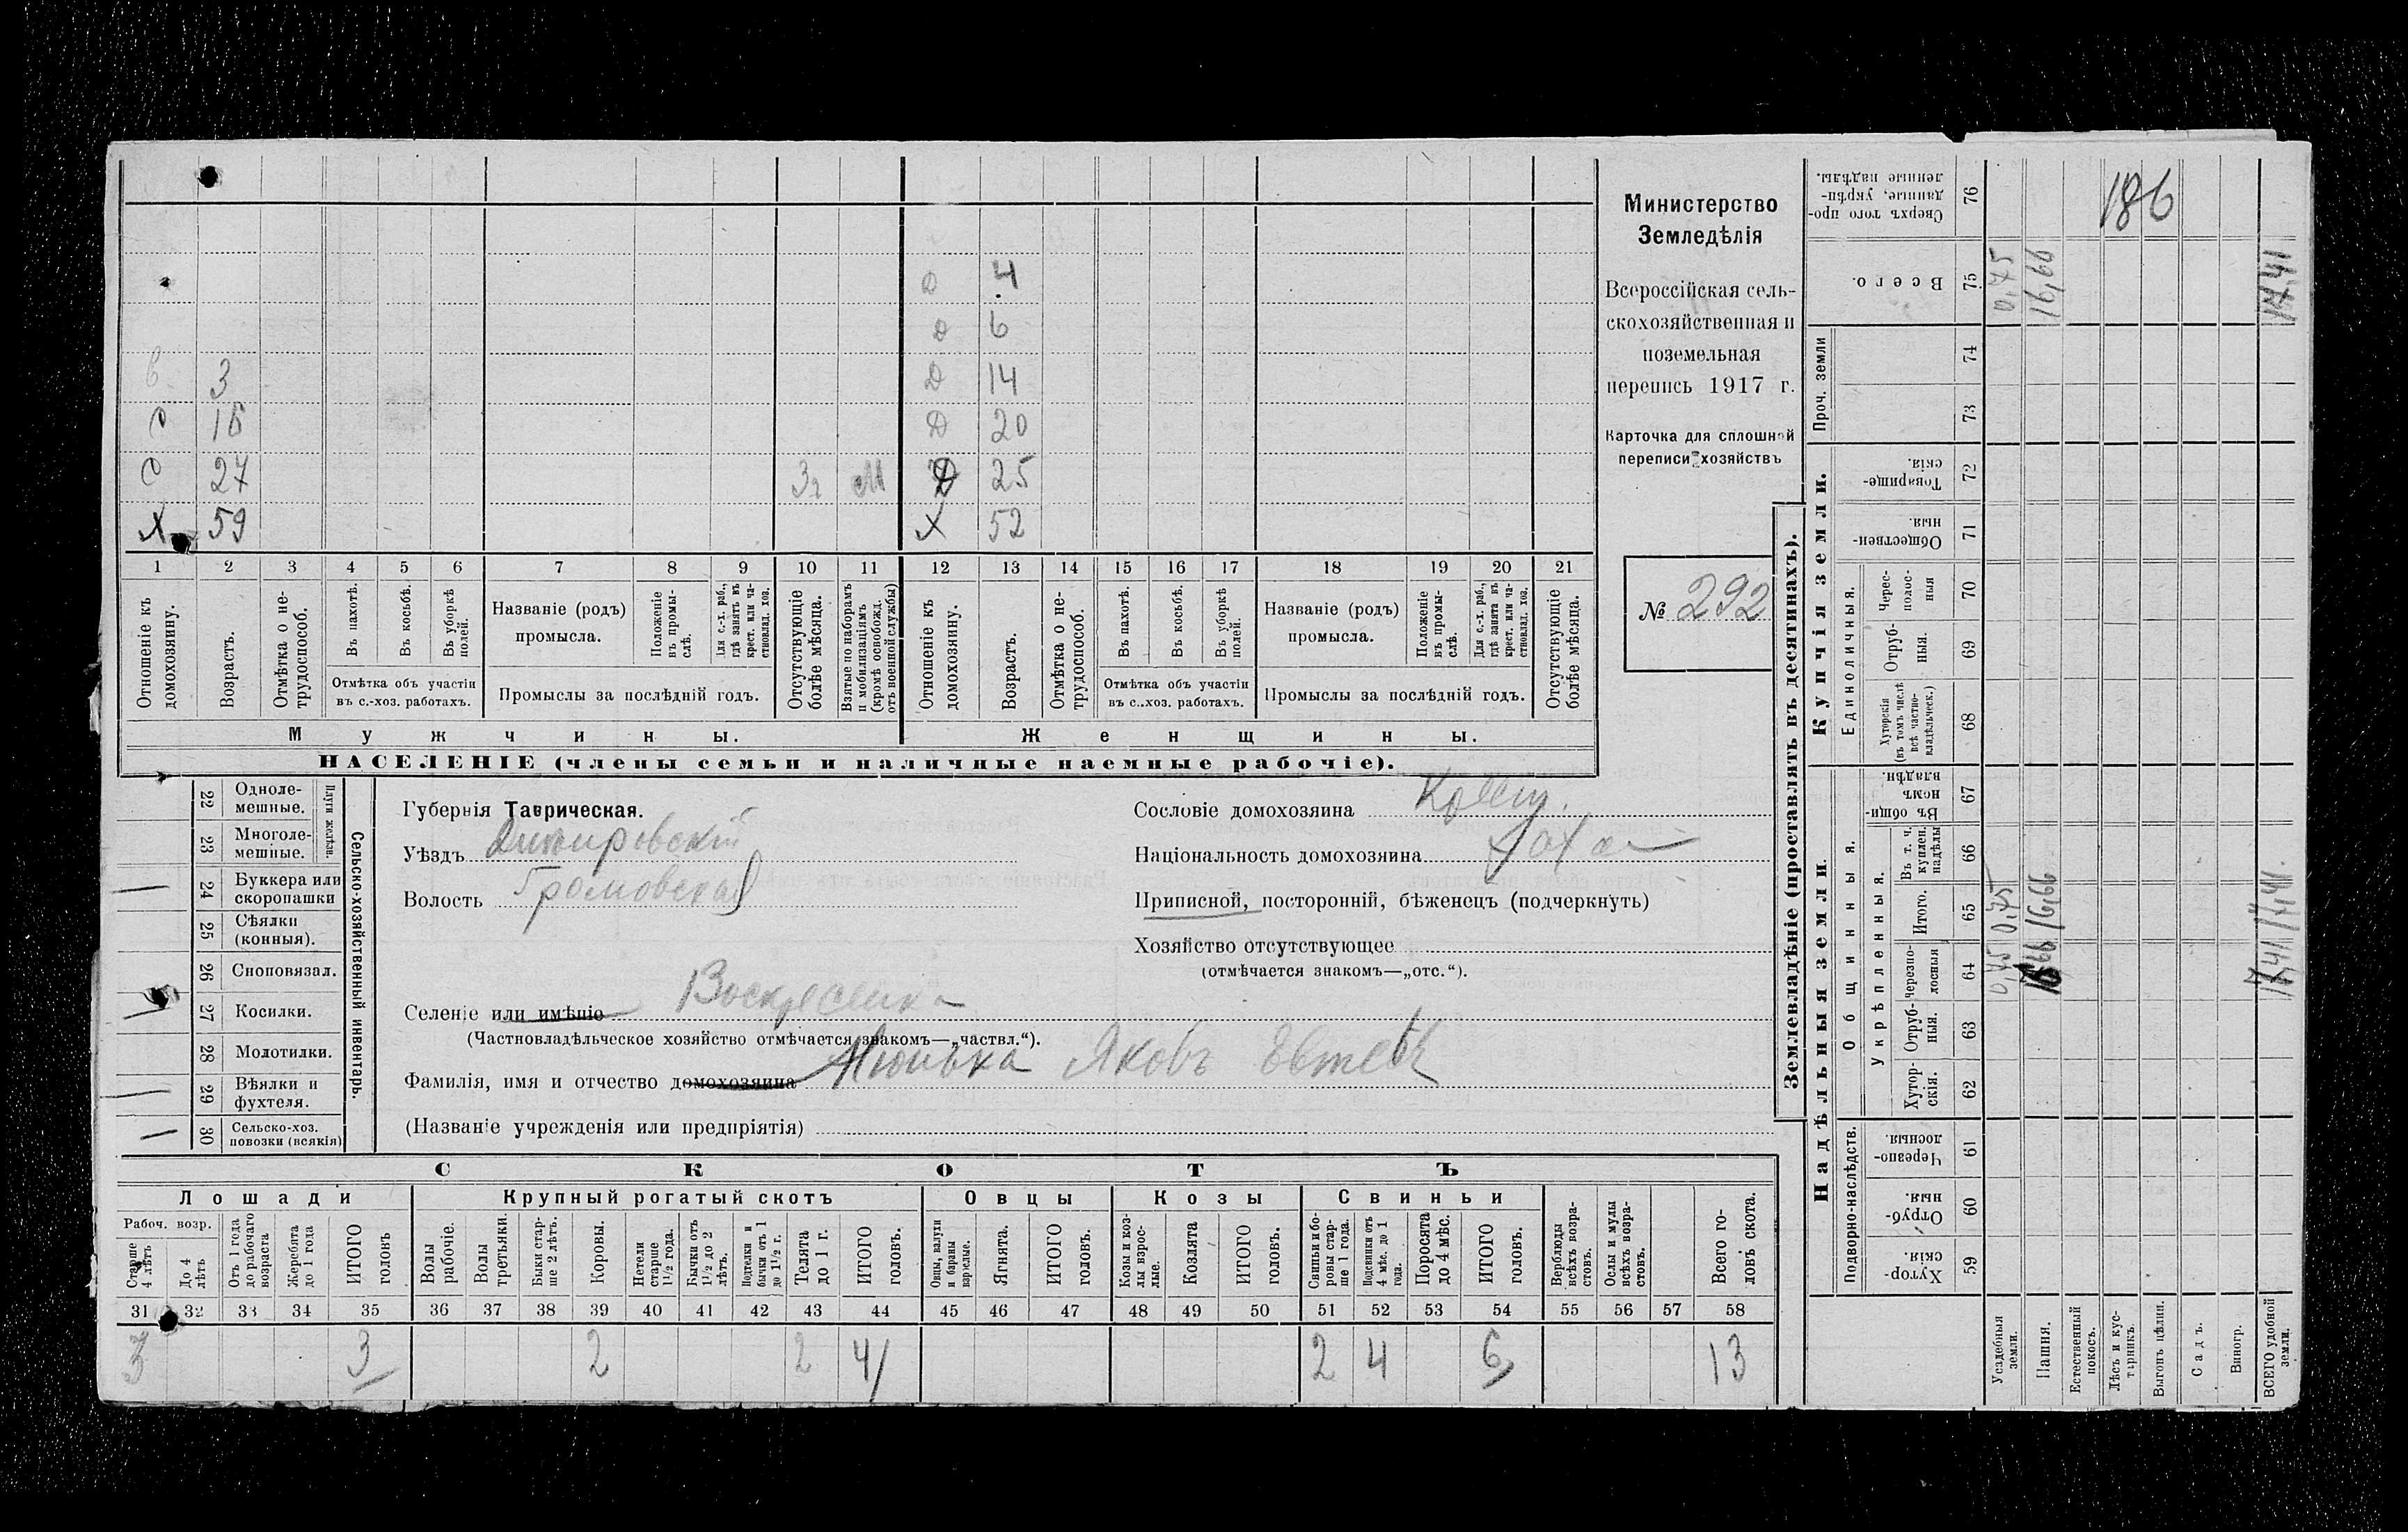 Министерство
Земледѣлія
Всероссійская сель-
скохозяйственная и
поземельная
перепись 1917 г.
Карточка для сплошной
переписи хозяйствъ
№ 292
186
Д 4
Д 6
3 Д 14
С 16 Д 20
С 27 3 М Д 25
Х 59 Х 52
1 2 3 4 5 6 7 8 9 10 11 12 13 14 15 16 17 18 19 20 21
Отношеніе къ домохозяину.
Возрастъ.
Отмѣтка о не-трудоспособ.
Въ пахотѣ.
Въ косьбѣ.
Въ уборкѣ полей.
Отмѣтка объ участіи
въ с.-хоз. работахъ.
Названіе (родъ)
промысла.
Положеніе въ промы-слѣ.
Для с.-х. раб., гдѣ занятъ въ крест. или ча-стновлад. хоз.
Промыслы за послѣдній годъ.
Отсутствующіе болѣе мѣсяца.
Взятые по наборамъ и мобилизаціямъ (кромѣ освобожд. отъ военной службы)
Отношеніе къ домохозяину.
Возрастъ.
Отмѣтка о не-трудоспособ.
Въ пахотѣ.
Въ косьбѣ.
Въ уборкѣ полей.
Отмѣтка объ участіи
въ с..хоз. работахъ.
Названіе (родъ)
промысла.
Положеніе въ промы-слѣ.
Для с.-х. раб., гдѣ занята въ крест. или ча-стновлад. хоз.
Промыслы за послѣдній годъ.
Отсутствующіе болѣе мѣсяца.
Мужчины. Женщины.
НАСЕЛЕНІЕ (члены семьи и наличные наемные рабочіе).
Сельско-хозяйственный инвентарь.
Плуги желѣзн.
22 Одноле-мешные.
23 Многоле-мешные.
24 Буккера или скоропашки
25 Сѣялки (конныя).
26 Сноповязал.
27 Косилки.
28 Молотилки.
29 Вѣялки и фухтеля.
30 Сельско-хоз. повозки (всякія)
Губернія Таврическая.
Уѣздъ Днѣпровскій
Волость Громовская
Селеніе или имѣніе Воскресенка
(Частновладѣльческое хозяйство отмѣчается знакомъ—„частвл.“).
Фамилія, имя и отчество домохозяина Яковъ Евтее
(Названіе учрежденія или предпріятія)
Сословіе домохозяина Крест.
Національность домохозяина
Приписной, посторонній, бѣженецъ (подчеркнуть)
Хозяйство отсутствующее
(отмѣчается знакомъ—„отс.“).
СКОТЪ
Лошади Крупный рогатый скотъ Овцы Козы Свиньи
Рабоч. возр.
Старше 4 лѣтъ
До 4 лѣтъ
Отъ 1 года до рабочаго возраста
Жеребята до 1 года
ИТОГО головъ
Волы рабочіе.
Волы третьяки.
Быки стар-ше 2 лѣтъ.
Коровы.
Нетели старше 1½ года.
Бычки отъ 1½ до 2 лѣтъ.
Подтелки и бычки отъ 1 до 1½ г.
Телята до 1 г.
ИТОГО головъ.
Овцы, валухи и бараны взрослые.
Ягнята.
ИТОГО головъ.
Козы и коз-лы взрос-лые.
Козлята
ИТОГО головъ.
Свиньи и бо-ровы стар-ше 1 года.
Подсвинки отъ 4 мѣс. до 1 года.
Поросята до 4 мѣс.
ИТОГО головъ.
Верблюды всѣхъ возра-стовъ.
Ослы и мулы всѣхъ возра-стовъ.
Всего го-ловъ скота.
31 32 33 34 35 36 37 38 39 40 41 42 43 44 45 46 47 48 49 50 51 52 53 54 55 56 57 58
3 3 2 2 4 2 4 6 13
Землевладѣніе (проставлять въ десятинахъ).
Купчія земли.
Надѣльныя земли.
Сверхъ того про-данные, укрѣп-ленные надѣлы. 76
Всего. 75
Проч. земли 74 73
Товарище-скія. 72
Обществен-ныя. 71
Единоличныя.
Черес-полос-ныя 70
Отруб-ныя. 69
Хуторскія (въ томъ числѣ всѣ частно-владѣльческ.) 68
Общинныя.
Въ общин-номъ владѣн. 67
Укрѣпленныя.
Въ т. ч. куплен. надѣлы 66
Итого. 65
Черезпо-лосныя 64
Отруб-ныя. 63
Хутор-скія. 62
Подворно-наслѣдств.
Черезпо-лосныя. 61
Отруб-ныя. 60
Хутор-скія. 59
Усадебныя земли. 0,75 0,75 0,75
Пашня. 16,66 16,66 16,66
Естественный покосъ.
Лѣсъ и кус-тарникъ.
Выгонъ цѣлин.
Садъ.
Виногр.
ВСЕГО удобной земли. 17,41 17,41 17,41